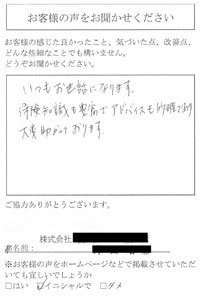 お客様の声をお聞かせください
お客様の感じた良かったこと、気づいた点、改善点、
どんな些細なことでも構いません。
どうぞお聞かせください。
いつもお世話になります。
保険知識も豊富でアドバイスも的確であり
大変助かっております。
ご協力ありがとうございます。
株式会社
名前:
※お客様の声をホームページなどで掲載させていただ
いても宜しいでしょうか
□はい ☑イニシャルで □ダメ